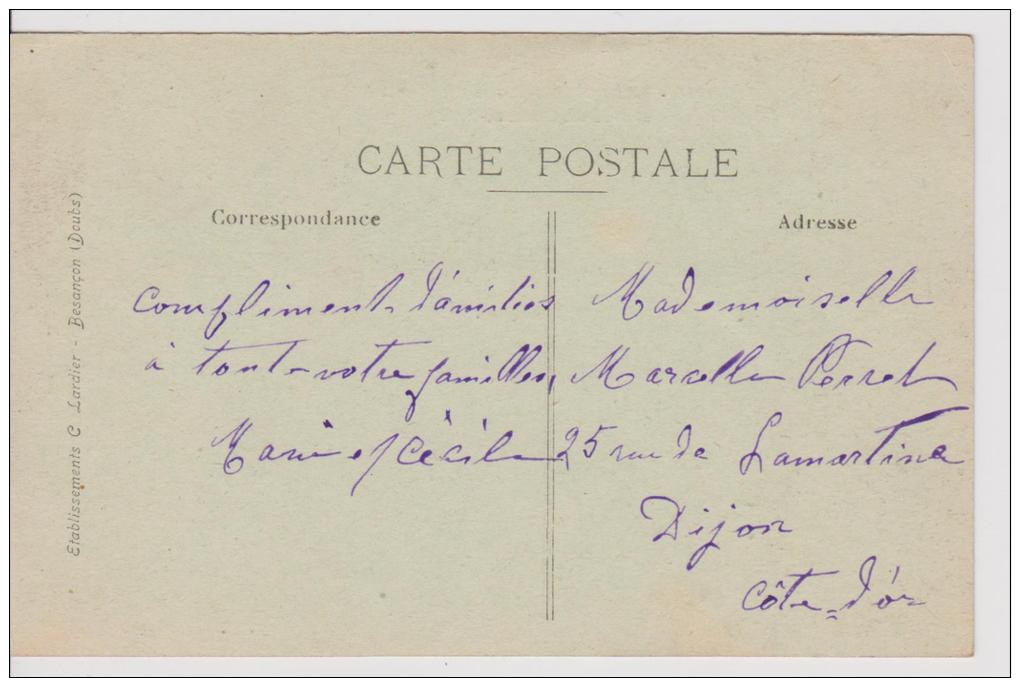 CARTE POSTALE
Correspondance
Adresse
Compliments d'amitiés
à toute votre familles,
Marie et Cécile
Mademoiselle
Marcelle Perret
25 rue de Lamartine
Dijon
Côte-d'or
Etablissements C Lardier - Besançon (Doubs)